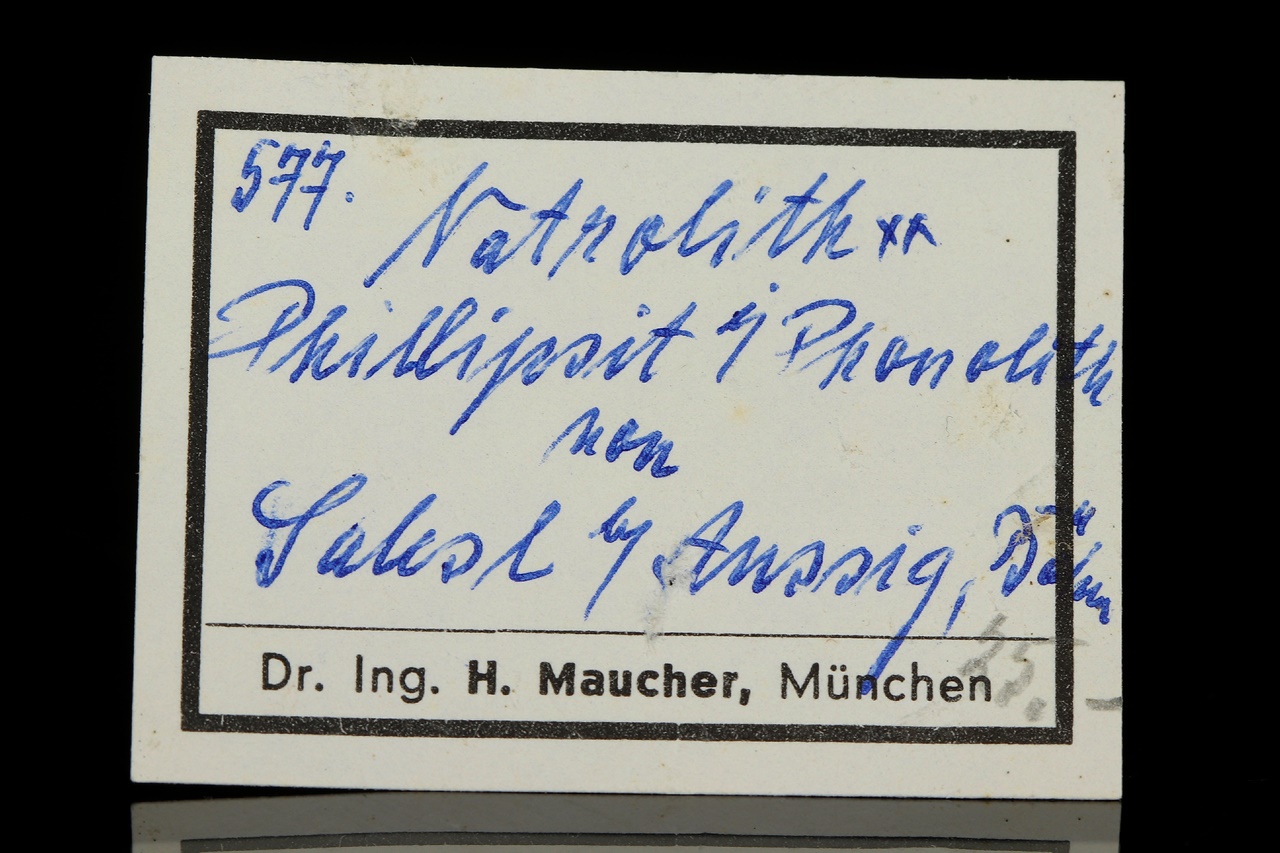 577.
Natrolith xx
Phillipsit i/ Phonolith
von
Salesl b/ Aussig, Böhm
Dr. Ing. H. Maucher, München
25.-